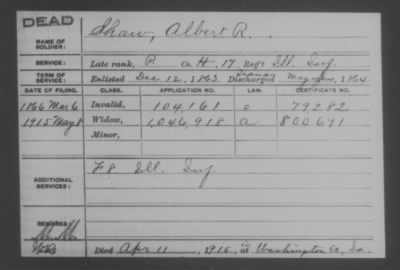 DEAD
Shaw, Albert R.
NAME OF SOLDIER:
SERVICE: Late rank, P Co. H, 17 Reg't Ill. Inf.
TERM OF SERVICE: Enlisted Dec 12, 1863 Discharged 1864
DATE OF FILING. CLASS. APPLICATION NO. LAW. CERTIFICATE NO.
1866 Mar 6 Invalid, 104,161 o 79282
1915 May 8 Widow, 1,046,918 a 800691
Minor,
ADDITIONAL SERVICES: F 8 Ill. Inf.
REMARKS:
Died Apr 11, 1915, at Washington Co, Ia.